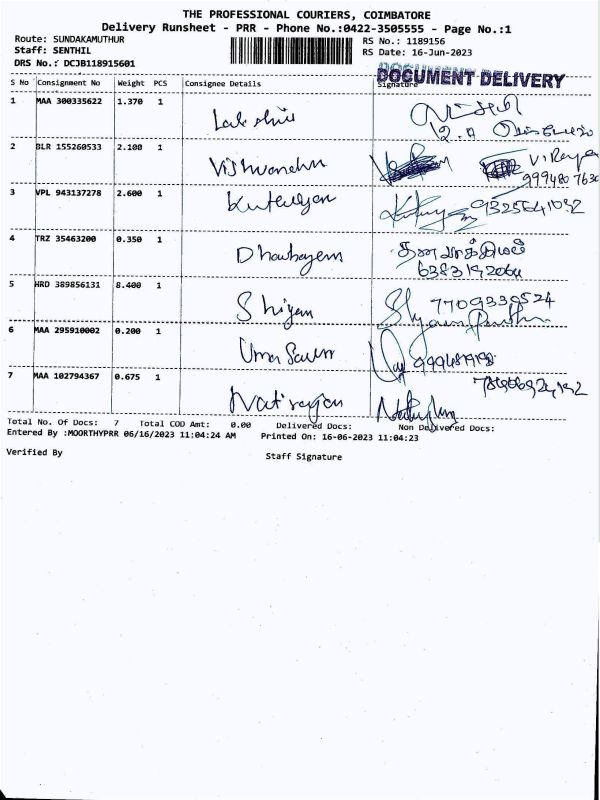 THE PROFESSIONAL COURIERS, COIMBATORE
Delivery Runsheet - PRR - Phone No.:0422-3505555 - Page No.:1
Route: SUNDAKAMUTHUR RS No.: 1189156
Staff: SENTHIL RS Date: 16-Jun-2023
DRS No.: DCJB118915601
DOCUMENT DELIVERY
S No Consignment No Weight PCS Consignee Details Signature
1 MAA 300335622 1.370 1
2 BLR 155260533 2.100 1 Vishwanathn
3 VPL 943137278 2.600 1 9325641032
4 TRZ 35463200 0.350 1
5 HRD 389856131 8.400 1 Shiyam 7709339524
6 MAA 295910002 0.200 1
7 MAA 102794367 0.675 1 Natrayan
Total No. Of Docs: 7 Total COD Amt: 0.00 Delivered Docs: Non Delivered Docs:
Entered By :MOORTHYPRR 06/16/2023 11:04:24 AM Printed On: 16-06-2023 11:04:23
Verified By Staff Signature